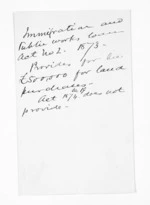 Immigration and
Public works loan
Act No 2. 1873.
Provides for
£500000 for land
purchases.
Act 1874 does not
provide.